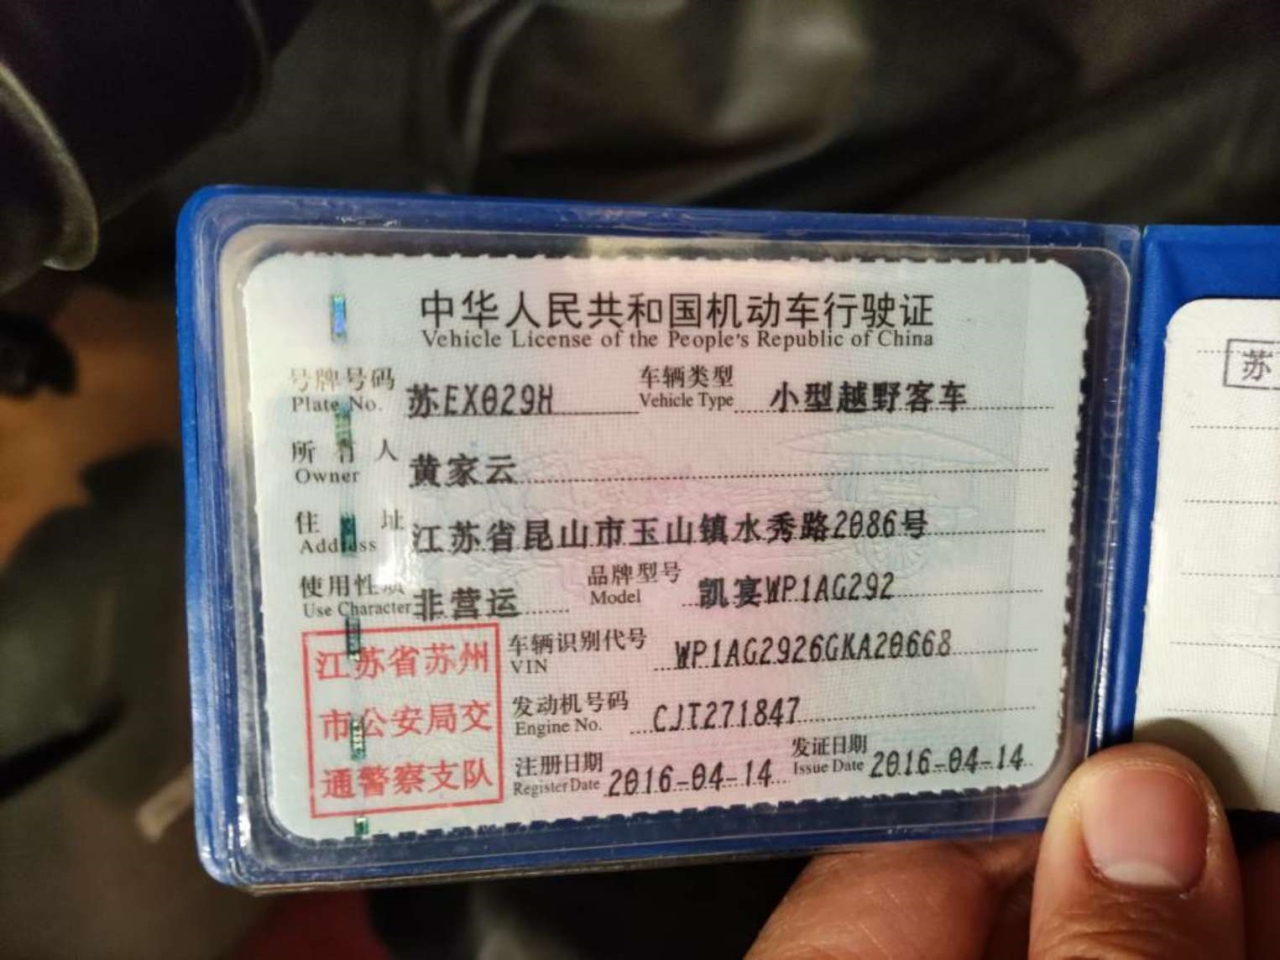 中华人民共和国机动车行驶证
Vehicle License of the People's Republic of China
号牌号码 苏EX029H 车辆类型 小型越野客车
Plate No. Vehicle Type
所有人 黄家云
Owner
住址 江苏省昆山市玉山镇水秀路2086号
Address
使用性质 非营运 品牌型号 凯宴WP1AG292
Use Character Model
江苏省苏州
市公安局交
通警察支队
车辆识别代号 WP1AG2926GKA20668
VIN
发动机号码 CJT271847
Engine No.
注册日期 2016-04-14 发证日期 2016-04-14
Register Date Issue Date
苏